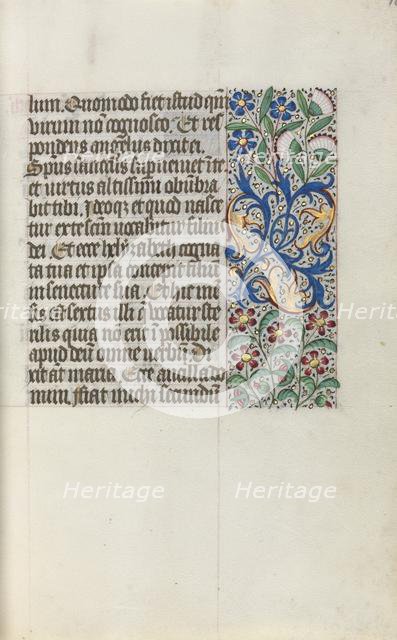 lum. Quomodo fiet istud qm̄
virum nō cognosco. Et res
pondens angelus dixit ei.
Sp̄us sanctus supueniet ī te
et virtus altissimi obūbra
bit tibi. Ideoq; et quod nasce
tur ex te sanctum vocabitur filius
dei. Et ecce helyzabeth cogna
ta tua et ipsa concepit filiū
in senectute sua. Et hic mē
sis ē sextus illi q̄ vocatur ste
rilis quia nō erit īpossibile
apud deū omne verbū. Di
xit aūt maria. Ecce ancilla do
mini. fiat michi secundū
Heritage
Heritage
Heritage
Heritage
Heritage
Heritage